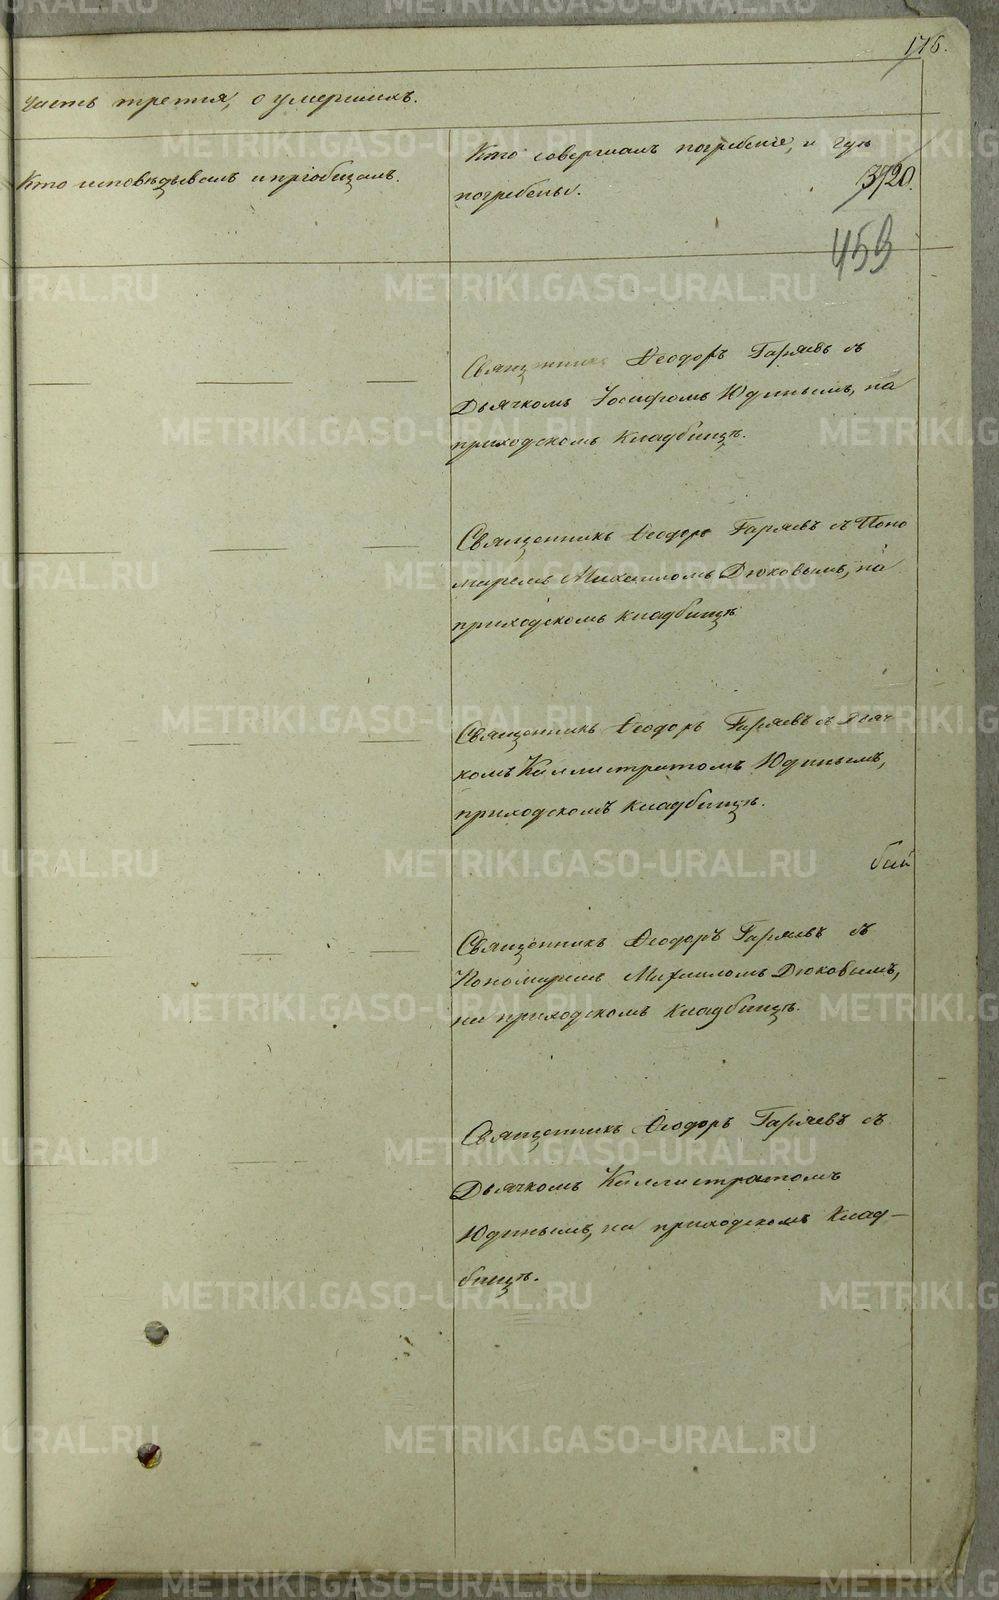 176.
Часть третія, о умершихъ.
Кто исповѣдывалъ и пріобщалъ.
Кто совершалъ погребеніе, и гдѣ
погребены.
3720.
459
Священникъ Ѳеодоръ Гаряевъ съ
Дьячкомъ Іосифомъ Юдинымъ, на
приходскомъ кладбищѣ.
Священникъ Ѳеодоръ Гаряевъ съ Поно
маремъ Михаиломъ Дюковымъ, на
приходскомъ кладбищѣ
Священникъ Ѳеодоръ Гаряевъ съ Дьяч
комъ Каллистратомъ Юдинымъ,
приходскомъ кладбищѣ.
Священникъ Ѳеодоръ Гаряевъ съ
Пономаремъ Михаиломъ Дюковымъ,
на приходскомъ кладбищѣ.
Священникъ Ѳеодоръ Гаряевъ съ
Дьячкомъ Каллистратомъ
Юдинымъ, на приходскомъ клад-
бищѣ.
METRIKI.GASO-URAL.RU